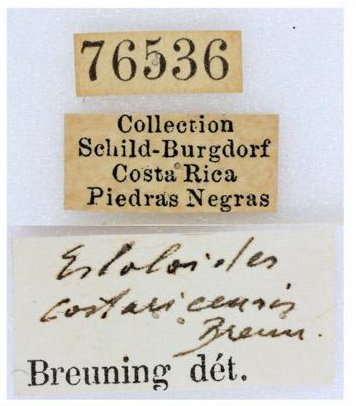 76536
Collection
Schild-Burgdorf
Costa Rica
Piedras Negras
Estoloides
costaricensis
Breun.
Breuning dét.